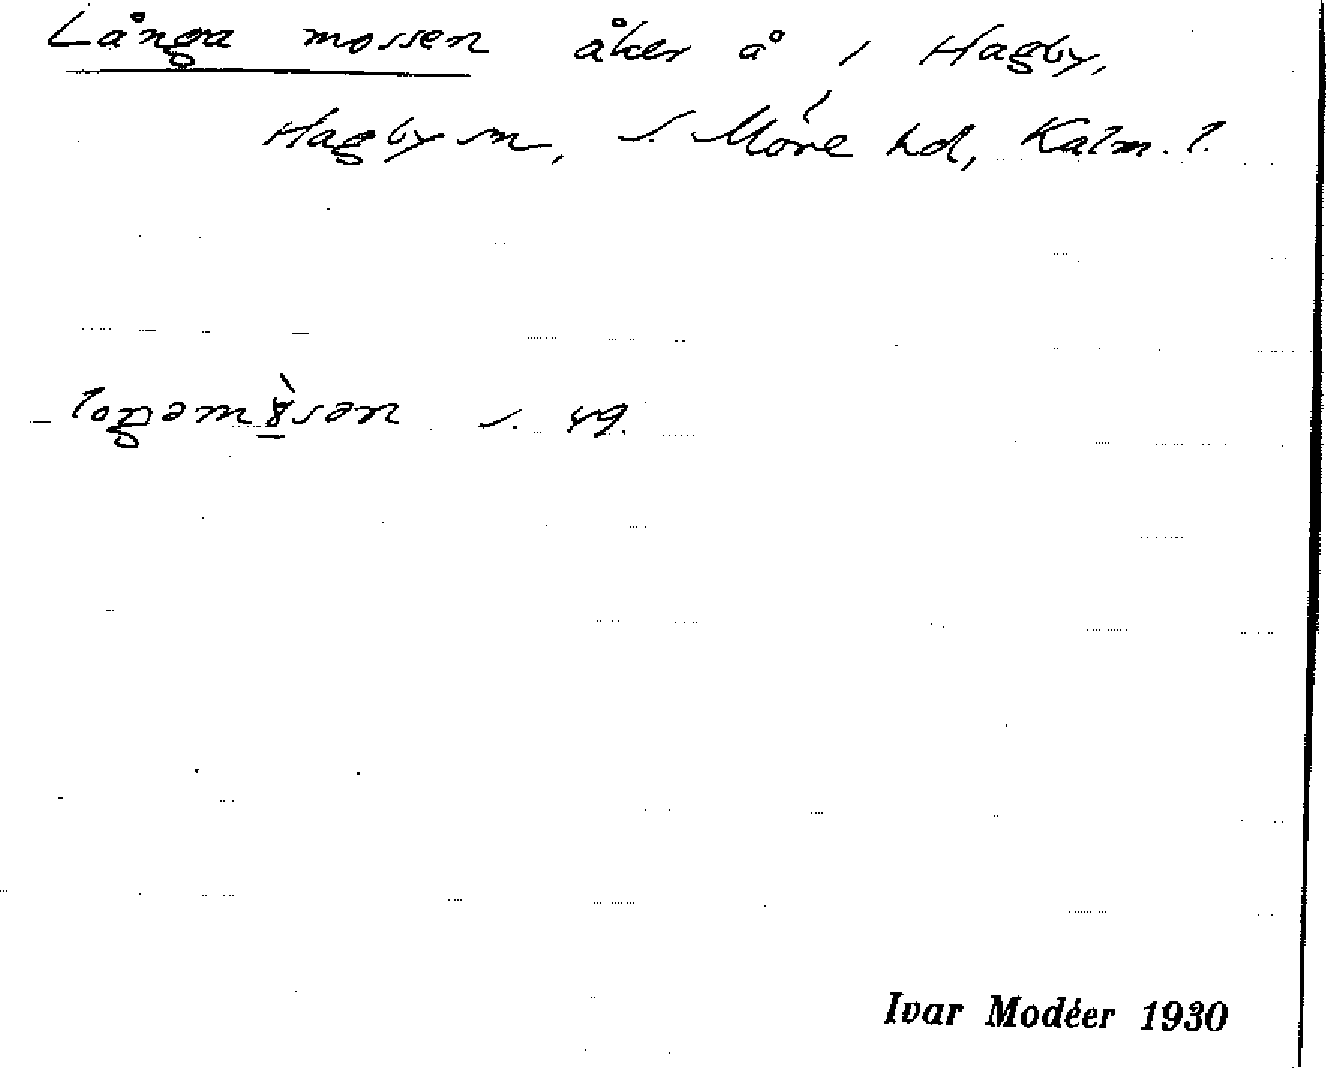 Långa mossen åker å i Hagby,
Hagby sn, S. Möre hd, Kalm. l.
s. 49.
Ivar Modéer 1930